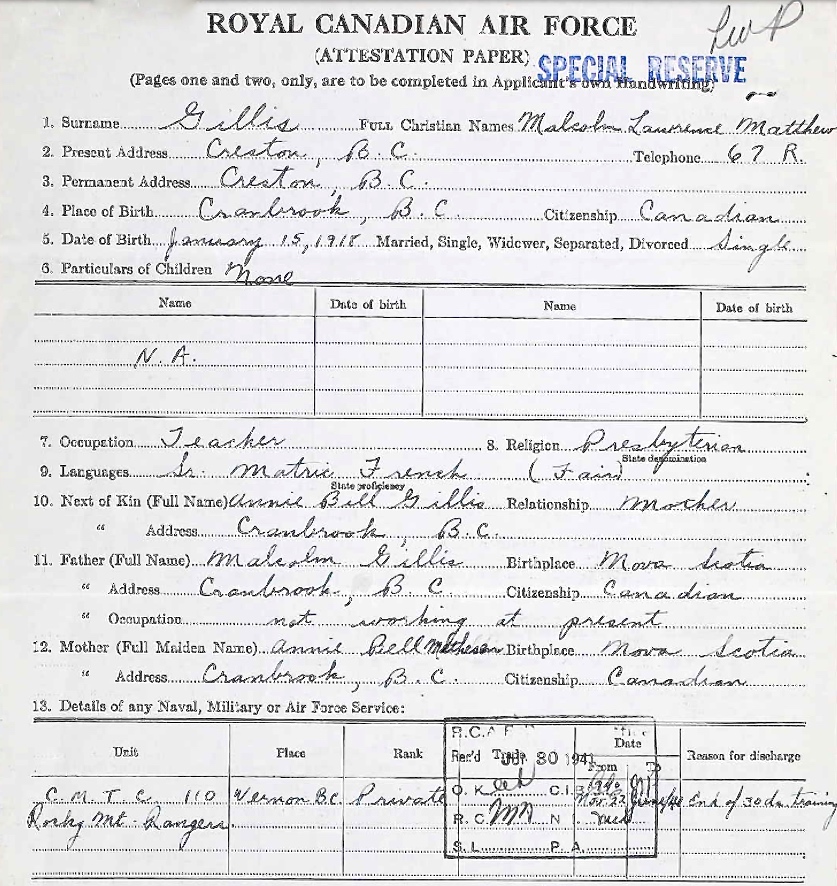 ROYAL CANADIAN AIR FORCE
(ATTESTATION PAPER)
SPECIAL RESERVE
(Pages one and two, only, are to be completed in Applicant's own Handwriting)
1. Surname Gillis Full Christian Names Malcolm Lawrence Matthew
2. Present Address Creston, B.C. Telephone 67 R.
3. Permanent Address Creston, B.C.
4. Place of Birth Cranbrook, B.C. Citizenship Canadian
5. Date of Birth January 15, 1918 Married, Single, Widower, Separated, Divorced Single
6. Particulars of Children None
Name Date of birth Name Date of birth
N.A.
7. Occupation Teacher 8. Religion Presbyterian
State denomination
9. Languages Sr. Matric French (Fair)
State proficiency
10. Next of Kin (Full Name) Annie Bell Gillis Relationship Mother
" Address Cranbrook, B.C.
11. Father (Full Name) Malcolm Gillis Birthplace Nova Scotia
" Address Cranbrook, B C Citizenship Canadian
" Occupation not working at present
12. Mother (Full Maiden Name) Annie Bell Matheson Birthplace Nova Scotia
" Address Cranbrook, B.C. Citizenship Canadian
13. Details of any Naval, Military or Air Force Service:
Unit Place Rank Date Reason for discharge
From To
R.C.A.F
Rec'd 30 1941
O.K. C.I.B.
R.C. N
S.L. P.A.
C.M.T.C. 110 Vernon B.C. Private Nov. 22 End of 30 da. training
Rocky Mt. Rangers